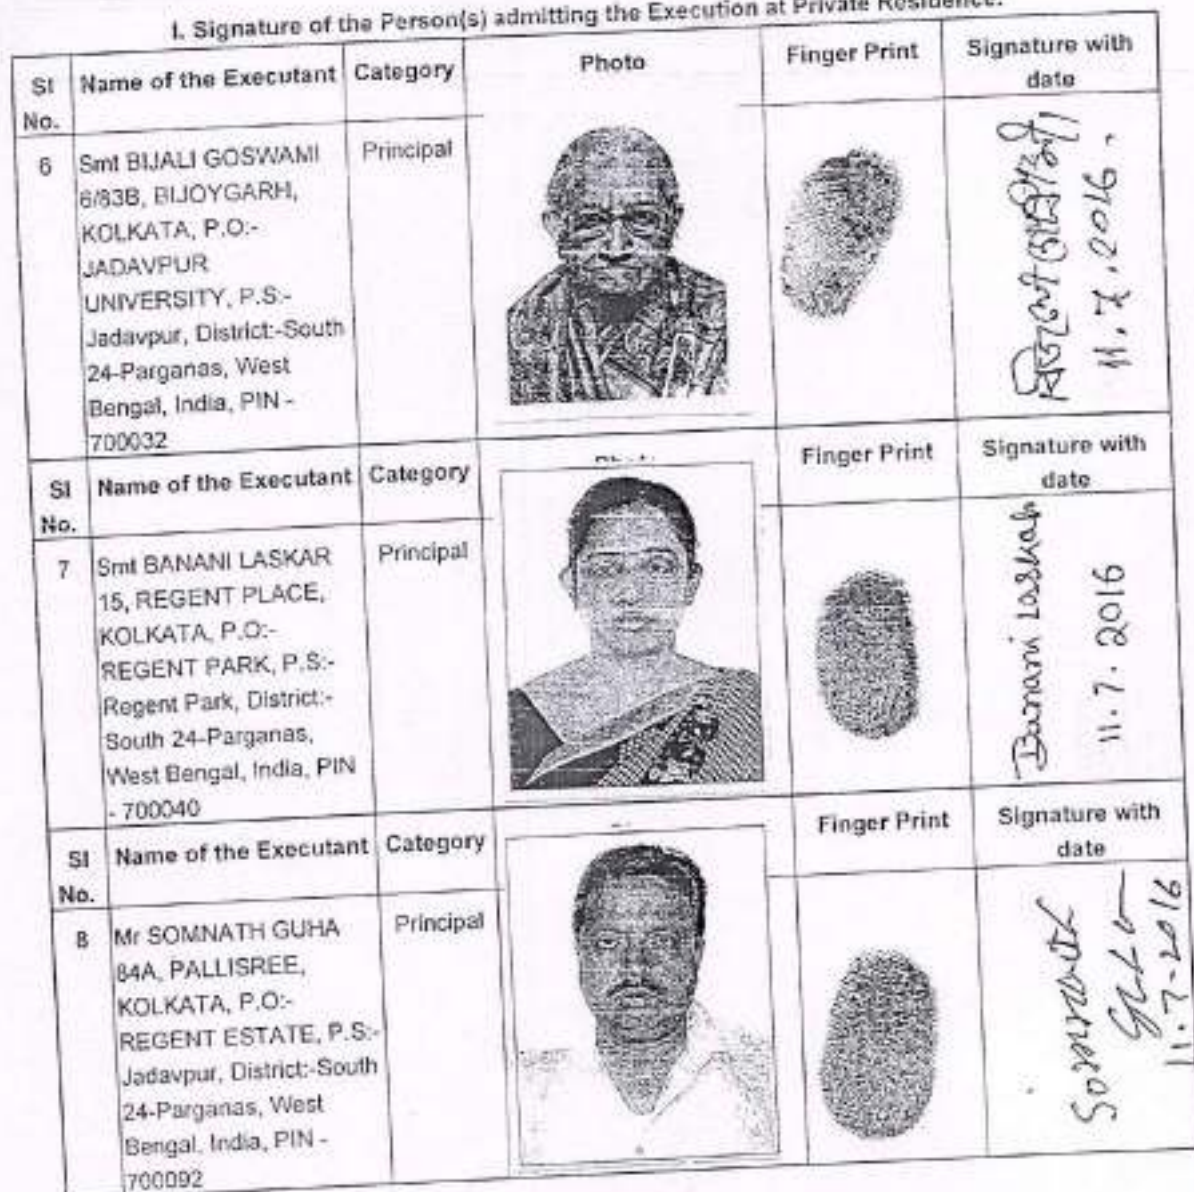 I. Signature of the Person(s) admitting the Execution at Private Residence.
Sl No.
Name of the Executant
Category
Photo
Finger Print
Signature with date
6
Smt BIJALI GOSWAMI
6/83B, BIJOYGARH,
KOLKATA, P.O:-
JADAVPUR
UNIVERSITY, P.S:-
Jadavpur, District:-South
24-Parganas, West
Bengal, India, PIN -
700032
Principal
11.7.2016.
Sl No.
Name of the Executant
Category
Finger Print
Signature with date
7
Smt BANANI LASKAR
15, REGENT PLACE,
KOLKATA, P.O:-
REGENT PARK, P.S:-
Regent Park, District:-
South 24-Parganas,
West Bengal, India, PIN
- 700040
Principal
Banani Laskar
11.7.2016
Sl No.
Name of the Executant
Category
Finger Print
Signature with date
8
Mr SOMNATH GUHA
84A, PALLISREE,
KOLKATA, P.O:-
REGENT ESTATE, P.S:-
Jadavpur, District:-South
24-Parganas, West
Bengal, India, PIN -
700092
Principal
Somnath
Guha
11.7-2016